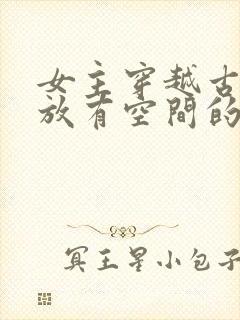 女主穿越古
放有空間的
冥王星小包子